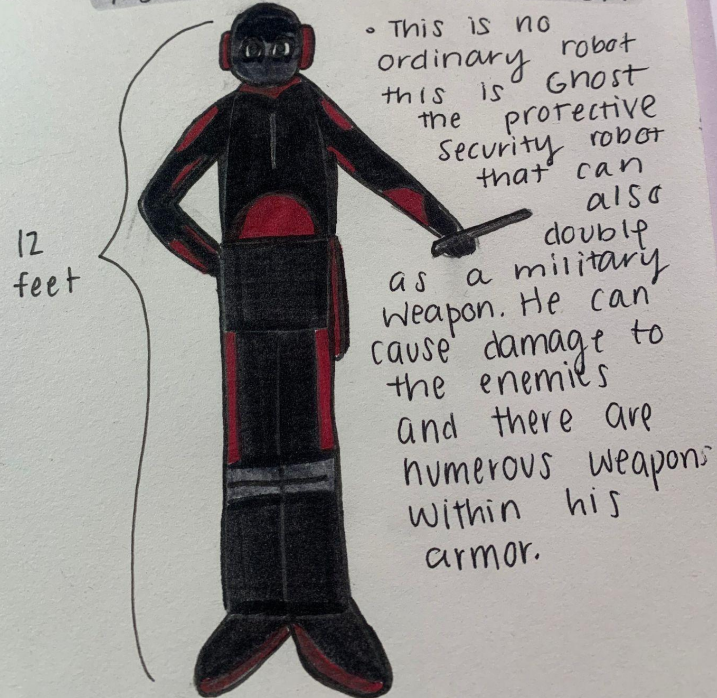 • This is no
ordinary robot
this is Ghost
the protective
security robot
that can
also
double
as a military
weapon. He can
cause damage to
the enemies
and there are
numerous weapons
within his
armor.
12
feet